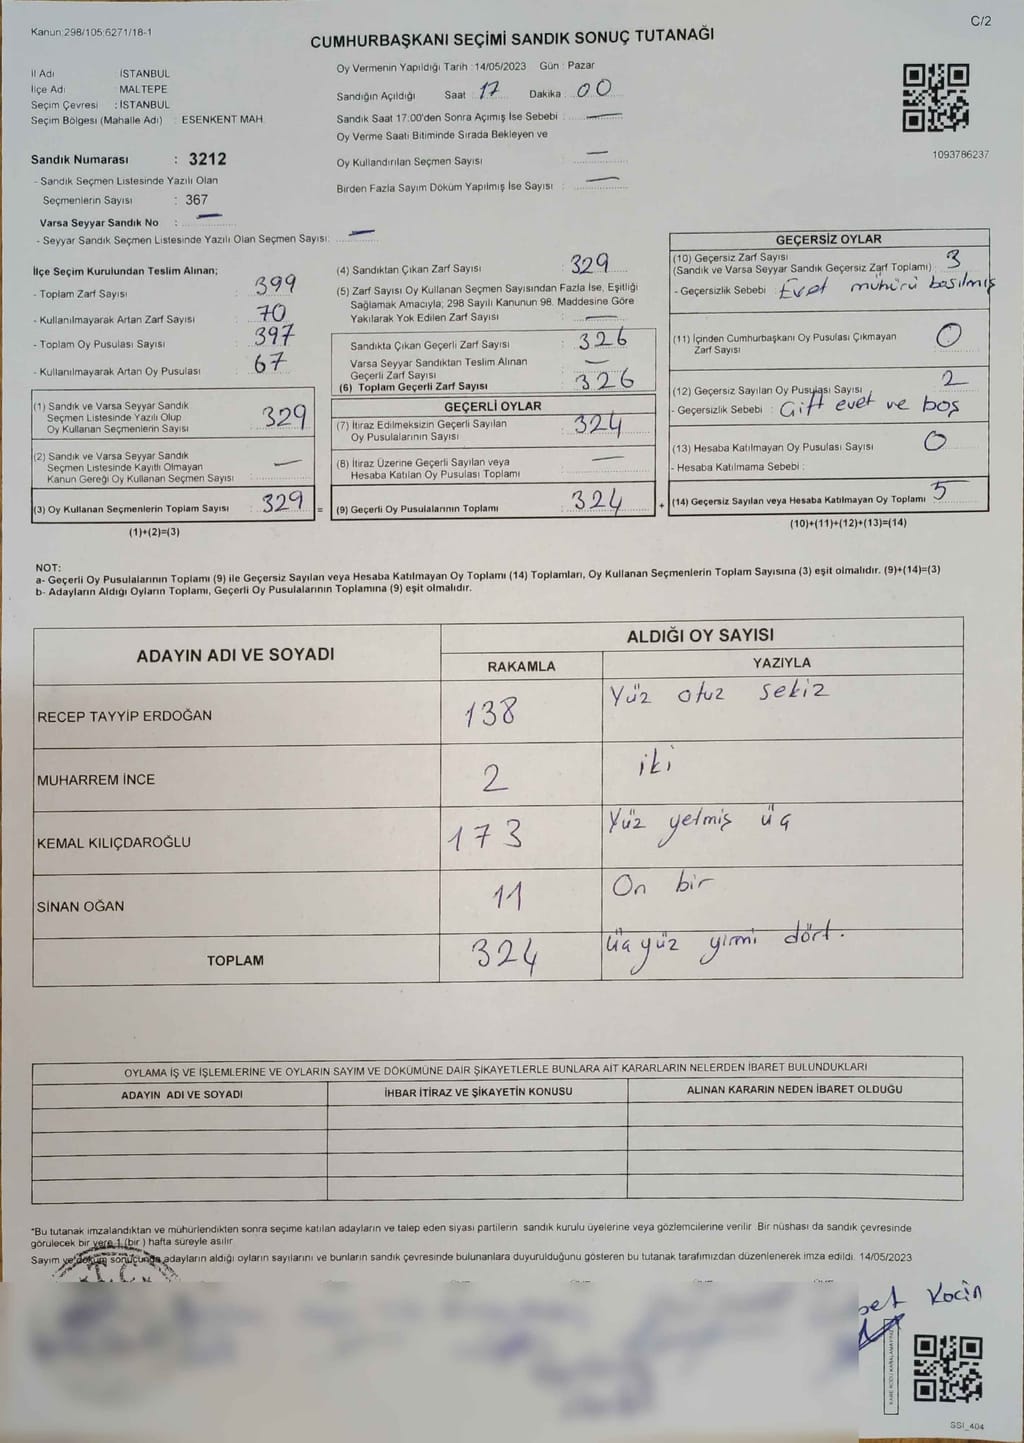 Kanun:298/105;6271/18-1
C/2
CUMHURBAŞKANI SEÇİMİ SANDIK SONUÇ TUTANAĞI
İl Adı : İSTANBUL
İlçe Adı : MALTEPE
Seçim Çevresi : İSTANBUL
Seçim Bölgesi (Mahalle Adı) : ESENKENT MAH.
Oy Vermenin Yapıldığı Tarih :14/05/2023 Gün : Pazar
Sandığın Açıldığı Saat : 17 Dakika : 00
Sandık Saat 17:00'den Sonra Açımış İse Sebebi : —
Oy Verme Saati Bitiminde Sırada Bekleyen ve
Oy Kullandırılan Seçmen Sayısı : —
Birden Fazla Sayım Döküm Yapılmış İse Sayısı : —
1093786237
Sandık Numarası : 3212
- Sandık Seçmen Listesinde Yazılı Olan
Seçmenlerin Sayısı : 367
Varsa Seyyar Sandık No : —
- Seyyar Sandık Seçmen Listesinde Yazılı Olan Seçmen Sayısı: —
İlçe Seçim Kurulundan Teslim Alınan;
- Toplam Zarf Sayısı : 399
- Kullanılmayarak Artan Zarf Sayısı : 70
- Toplam Oy Pusulası Sayısı : 397
- Kullanılmayarak Artan Oy Pusulası : 67
(1) Sandık ve Varsa Seyyar Sandık
Seçmen Listesinde Yazılı Olup
Oy Kullanan Seçmenlerin Sayısı : 329
(2) Sandık ve Varsa Seyyar Sandık
Seçmen Listesinde Kayıtlı Olmayan
Kanun Gereği Oy Kullanan Seçmen Sayısı : —
(3) Oy Kullanan Seçmenlerin Toplam Sayısı : 329 =
(1)+(2)=(3)
(4) Sandıktan Çıkan Zarf Sayısı : 329
(5) Zarf Sayısı Oy Kullanan Seçmen Sayısından Fazla İse, Eşitliği
Sağlamak Amacıyla; 298 Sayılı Kanunun 98. Maddesine Göre
Yakılarak Yok Edilen Zarf Sayısı : —
Sandıkta Çıkan Geçerli Zarf Sayısı : 326
Varsa Seyyar Sandıktan Teslim Alınan
Geçerli Zarf Sayısı : —
(6) Toplam Geçerli Zarf Sayısı : 326
GEÇERLİ OYLAR
(7) İtiraz Edilmeksizin Geçerli Sayılan
Oy Pusulalarının Sayısı : 324
(8) İtiraz Üzerine Geçerli Sayılan veya
Hesaba Katılan Oy Pusulası Toplamı : —
(9) Geçerli Oy Pusulalarının Toplamı : 324 +
GEÇERSİZ OYLAR
(10) Geçersiz Zarf Sayısı
(Sandık ve Varsa Seyyar Sandık Geçersiz Zarf Toplamı) : 3
- Geçersizlik Sebebi : Evet mühürü basılmış
(11) İçinden Cumhurbaşkanı Oy Pusulası Çıkmayan
Zarf Sayısı : 0
(12) Geçersiz Sayılan Oy Pusulası Sayısı : 2
- Geçersizlik Sebebi : Çift evet ve boş
(13) Hesaba Katılmayan Oy Pusulası Sayısı : 0
- Hesaba Katılmama Sebebi :
(14) Geçersiz Sayılan veya Hesaba Katılmayan Oy Toplamı : 5
(10)+(11)+(12)+(13)=(14)
NOT:
a- Geçerli Oy Pusulalarının Toplamı (9) ile Geçersiz Sayılan veya Hesaba Katılmayan Oy Toplamı (14) Toplamları, Oy Kullanan Seçmenlerin Toplam Sayısına (3) eşit olmalıdır. (9)+(14)=(3)
b- Adayların Aldığı Oyların Toplamı, Geçerli Oy Pusulalarının Toplamına (9) eşit olmalıdır.
ADAYIN ADI VE SOYADI ALDIĞI OY SAYISI
RAKAMLA YAZIYLA
RECEP TAYYİP ERDOĞAN 138 Yüz otuz sekiz
MUHARREM İNCE 2 iki
KEMAL KILIÇDAROĞLU 173 Yüz yetmiş üç
SİNAN OĞAN 11 On bir
TOPLAM 324 üçyüz yirmi dört.
OYLAMA İŞ VE İŞLEMLERİNE VE OYLARIN SAYIM VE DÖKÜMÜNE DAİR ŞİKAYETLERLE BUNLARA AİT KARARLARIN NELERDEN İBARET BULUNDUKLARI
ADAYIN ADI VE SOYADI İHBAR İTİRAZ VE ŞİKAYETİN KONUSU ALINAN KARARIN NEDEN İBARET OLDUĞU
*Bu tutanak imzalandıktan ve mühürlendikten sonra seçime katılan adayların ve talep eden siyasi partilerin sandık kurulu üyelerine veya gözlemcilerine verilir. Bir nüshası da sandık çevresinde
görülecek bir yere 1 (bir ) hafta süreyle asılır.
Sayım ve döküm sonucunda adayların aldığı oyların sayılarını ve bunların sandık çevresinde bulunanlara duyurulduğunu gösteren bu tutanak tarafımızdan düzenlenerek imza edildi. 14/05/2023
T.C.
Koçin
SSI_404